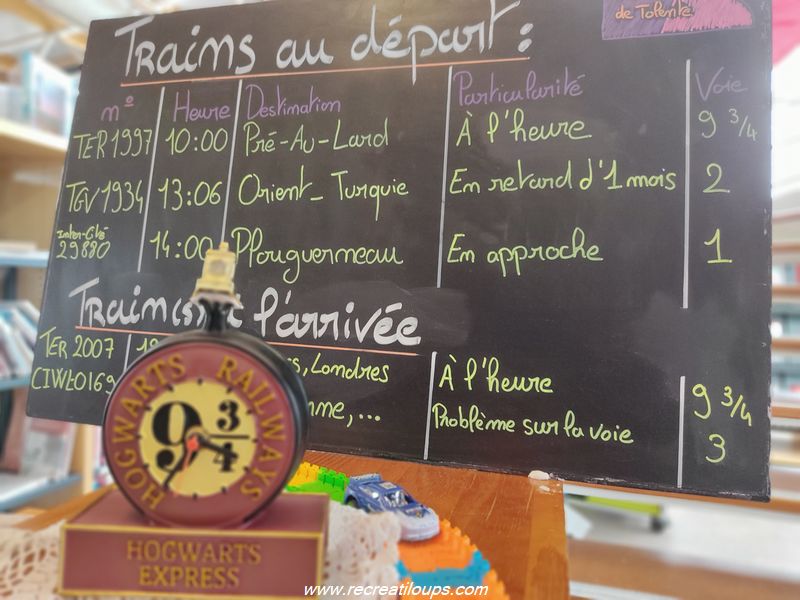 de Tolente
Trains au départ :
n° Heure Destination Particularité Voie
TER 1997 10:00 Pré-Au-Lard À l'heure 9 3/4
TGV 1934 13:06 Orient-Turquie En retard d'1 mois 2
Inter-Cité 29880 14:00 Plouguerneau En approche 1
Train(s) à l'arrivée
TER 2007 Londres À l'heure 9 3/4
CIWL0169 ... Problème sur la voie 3
HOGWARTS RAILWAYS
9 3/4
HOGWARTS
EXPRESS
www.recreatiloups.com